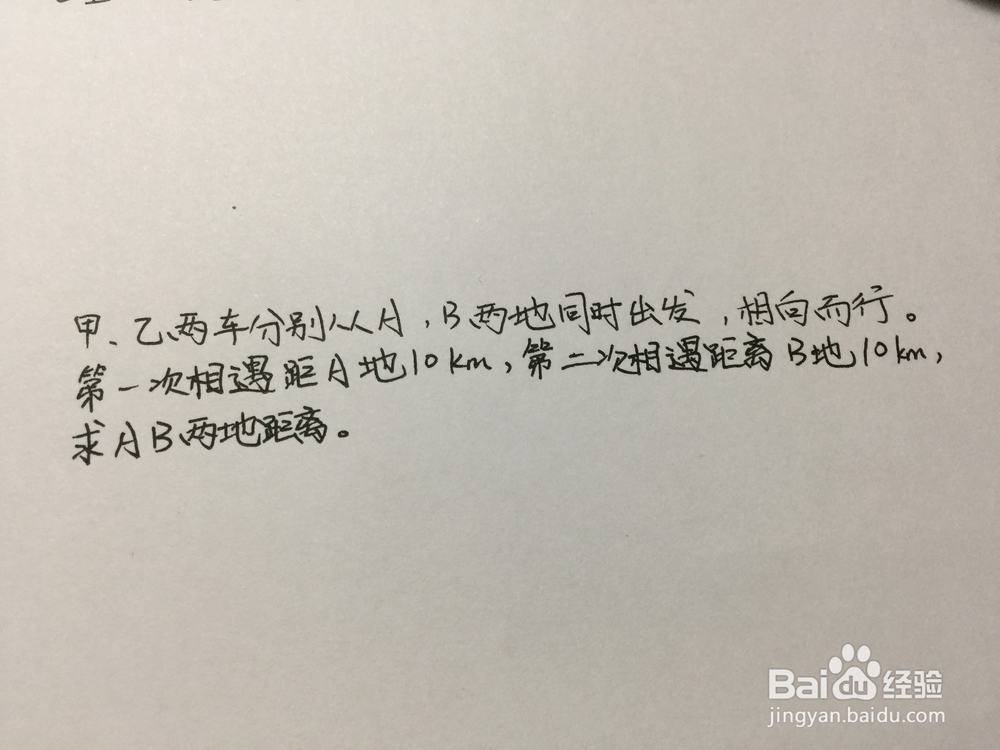 甲、乙两车分别从A,B两地同时出发,相向而行。
第一次相遇距A地10km,第二次相遇距离B地10km,
求AB两地距离。
Baidu经验
jingyan.baidu.com